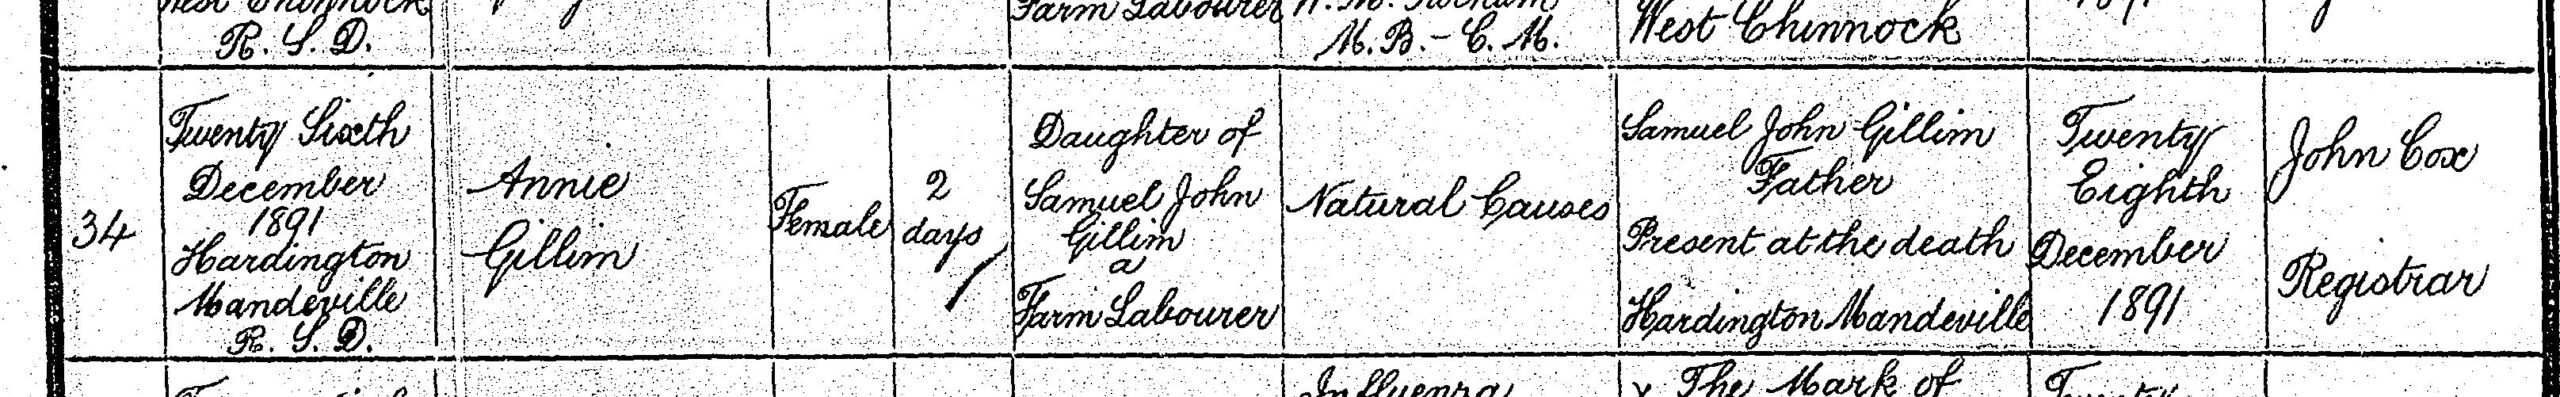 West Chinnock
R. S. D.
Farm Labourer
M. B. - C. M.
West Chinnock
34
Twenty Sixth
December
1891
Hardington
Mandeville
R. S. D.
Annie
Gillim
Female
2
days
Daughter of
Samuel John
Gillim
a
Farm Labourer
Natural Causes
Samuel John Gillim
Father
Present at the death
Hardington Mandeville
Twenty
Eighth
December
1891
John Cox
Registrar
Influenza
x The Mark of
Twenty